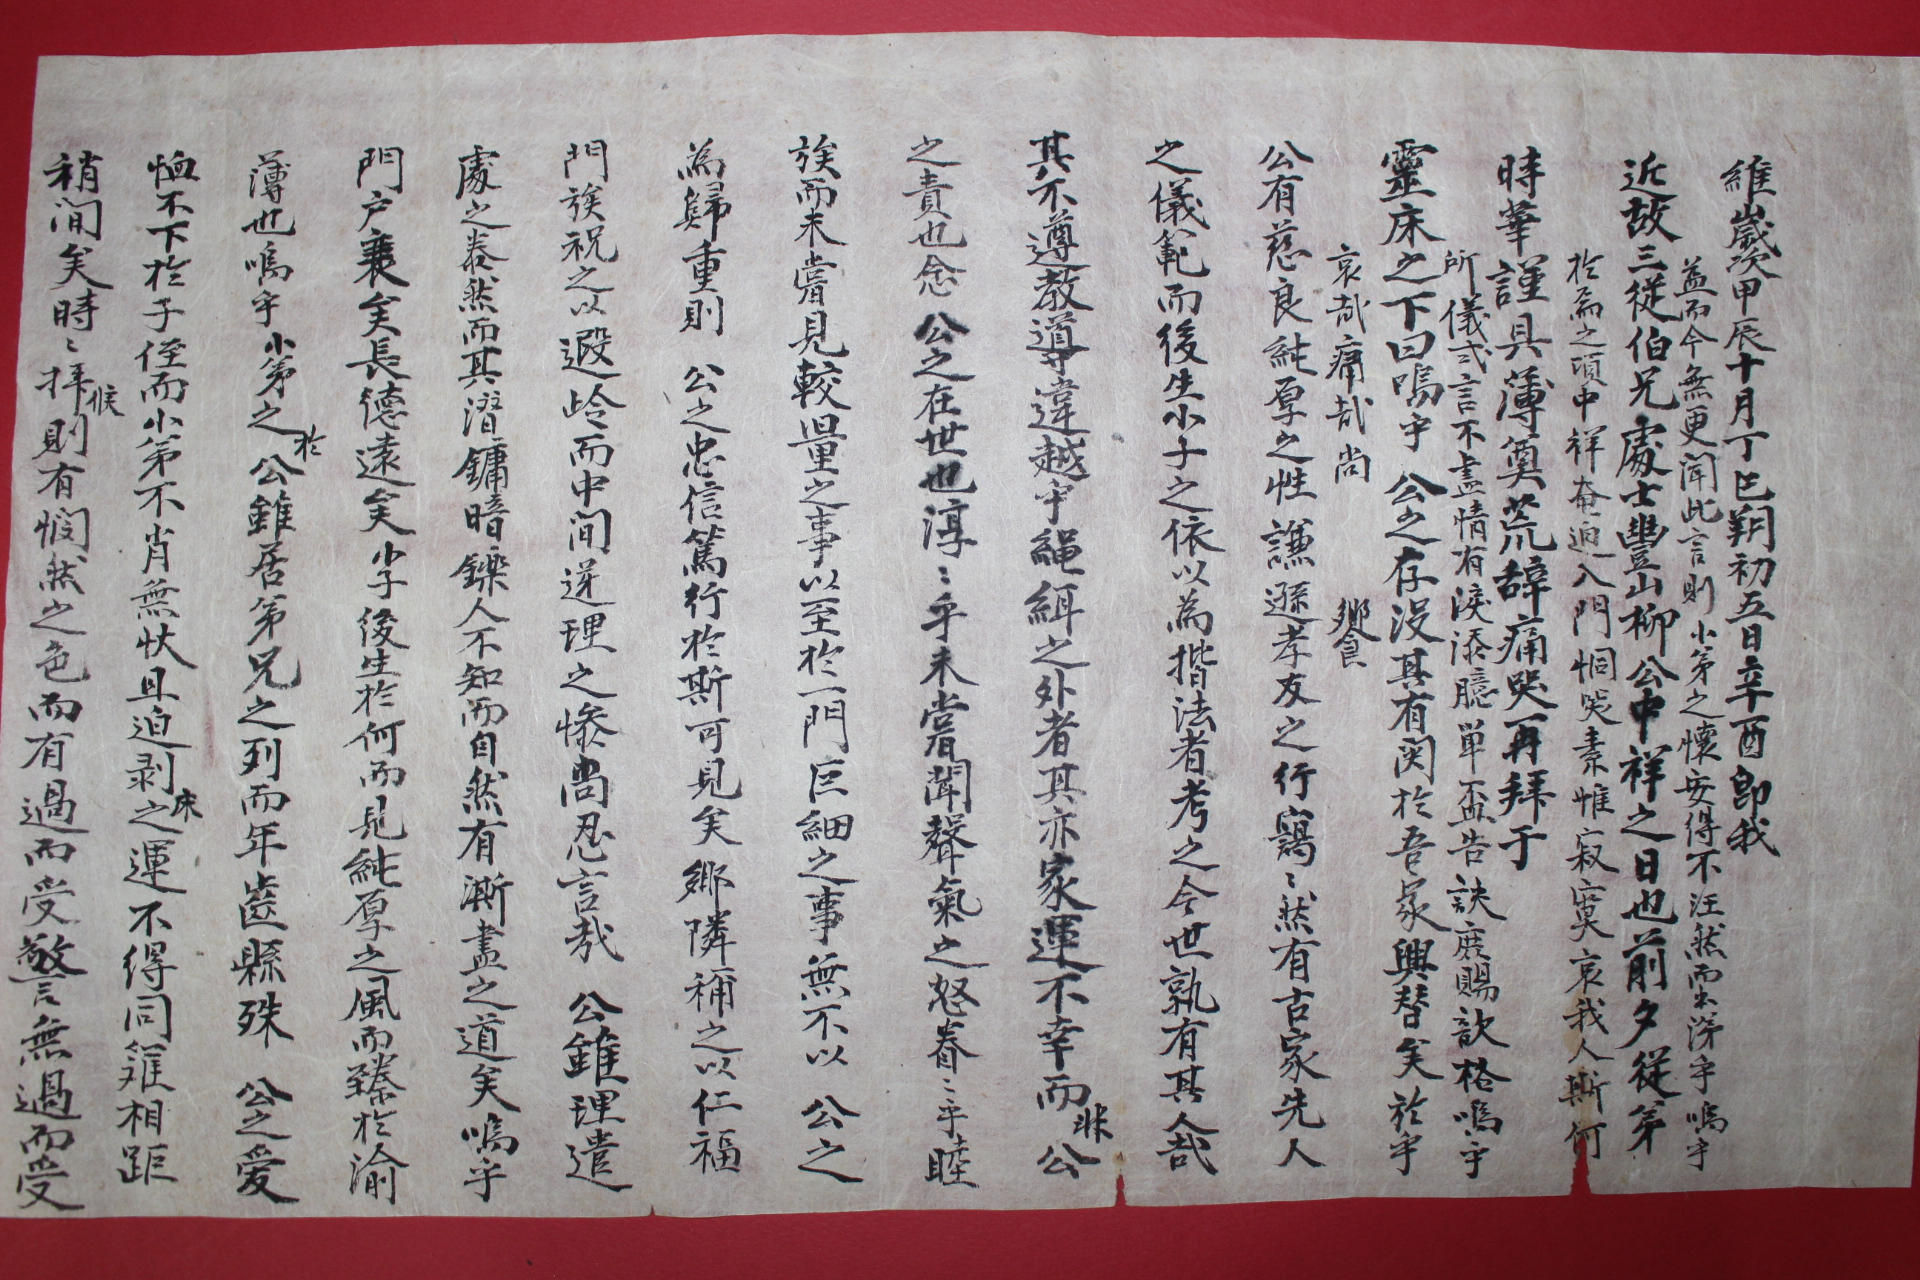 維歲次甲辰十月丁巳朔初五日辛酉卽我
近故三從伯兄處士豐山柳公中祥之日也前夕從弟
時華謹具薄奠荒辞痛哭再拜于
靈床之下曰嗚乎 公之存沒其有関於吾家興替矣於乎
公有慈良純厚之性謙遜孝友之行藹〻然有古家先人
之儀範而後生小子之依以為揩法者考之今世孰有其人哉
其不遵教導違越乎繩絙之外者其亦家運不幸而非公
之責也念 公之在世也淳〻乎未嘗聞聲氣之怒眷〻乎睦
族而未嘗見較量之事以至於一門巨細之事無不以 公之
為歸重則 公之忠信篤行於斯可見矣鄉隣稱之以仁福
門族祝之以遐岭而中間逆理之慘尚忍言哉 公雖理遣
處之泰然而其潛鏞暗鑠人不知而自然有漸盡之道矣嗚乎
門戶衰矣長德遠矣小子後生於何而見純厚之風而臻於渝
薄也嗚乎小弟之於公雖居弟兄之列而年齒縣殊 公之爱
恤不下於子侄而小弟不肖無状且迫剥床之運不得同 相距
稍間矣時〻拜候則有憫然之色而有過而受警無過而受
益而今無更闻此言則小弟之懷安得不汪然而出涕乎嗚乎
於焉之頃中祥奄迫入門恫哭素惟寂寞哀我人斯何
所儀式言不盡情有淚添臆單盃告訣庶賜歆格嗚乎
哀哉痛哉尚 饗